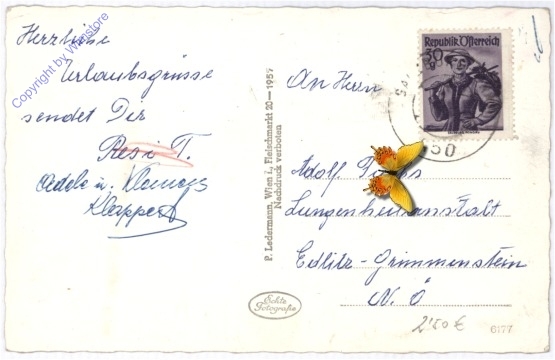 Herzliche
Urlaubsgrüsse
sendet Dir
Resi T.
Adele u. Klemens
Klappert
Copyright by Wienstore
P. Ledermann, Wien I., Fleischmarkt 20—1957
Nachdruck verboten
Echte
Fotografie
Republik Österreich
30
50
An Herrn
Adolf
Lungenheilanstalt
Edlitz-Grimmenstein
N.Ö
2'50 €
6177